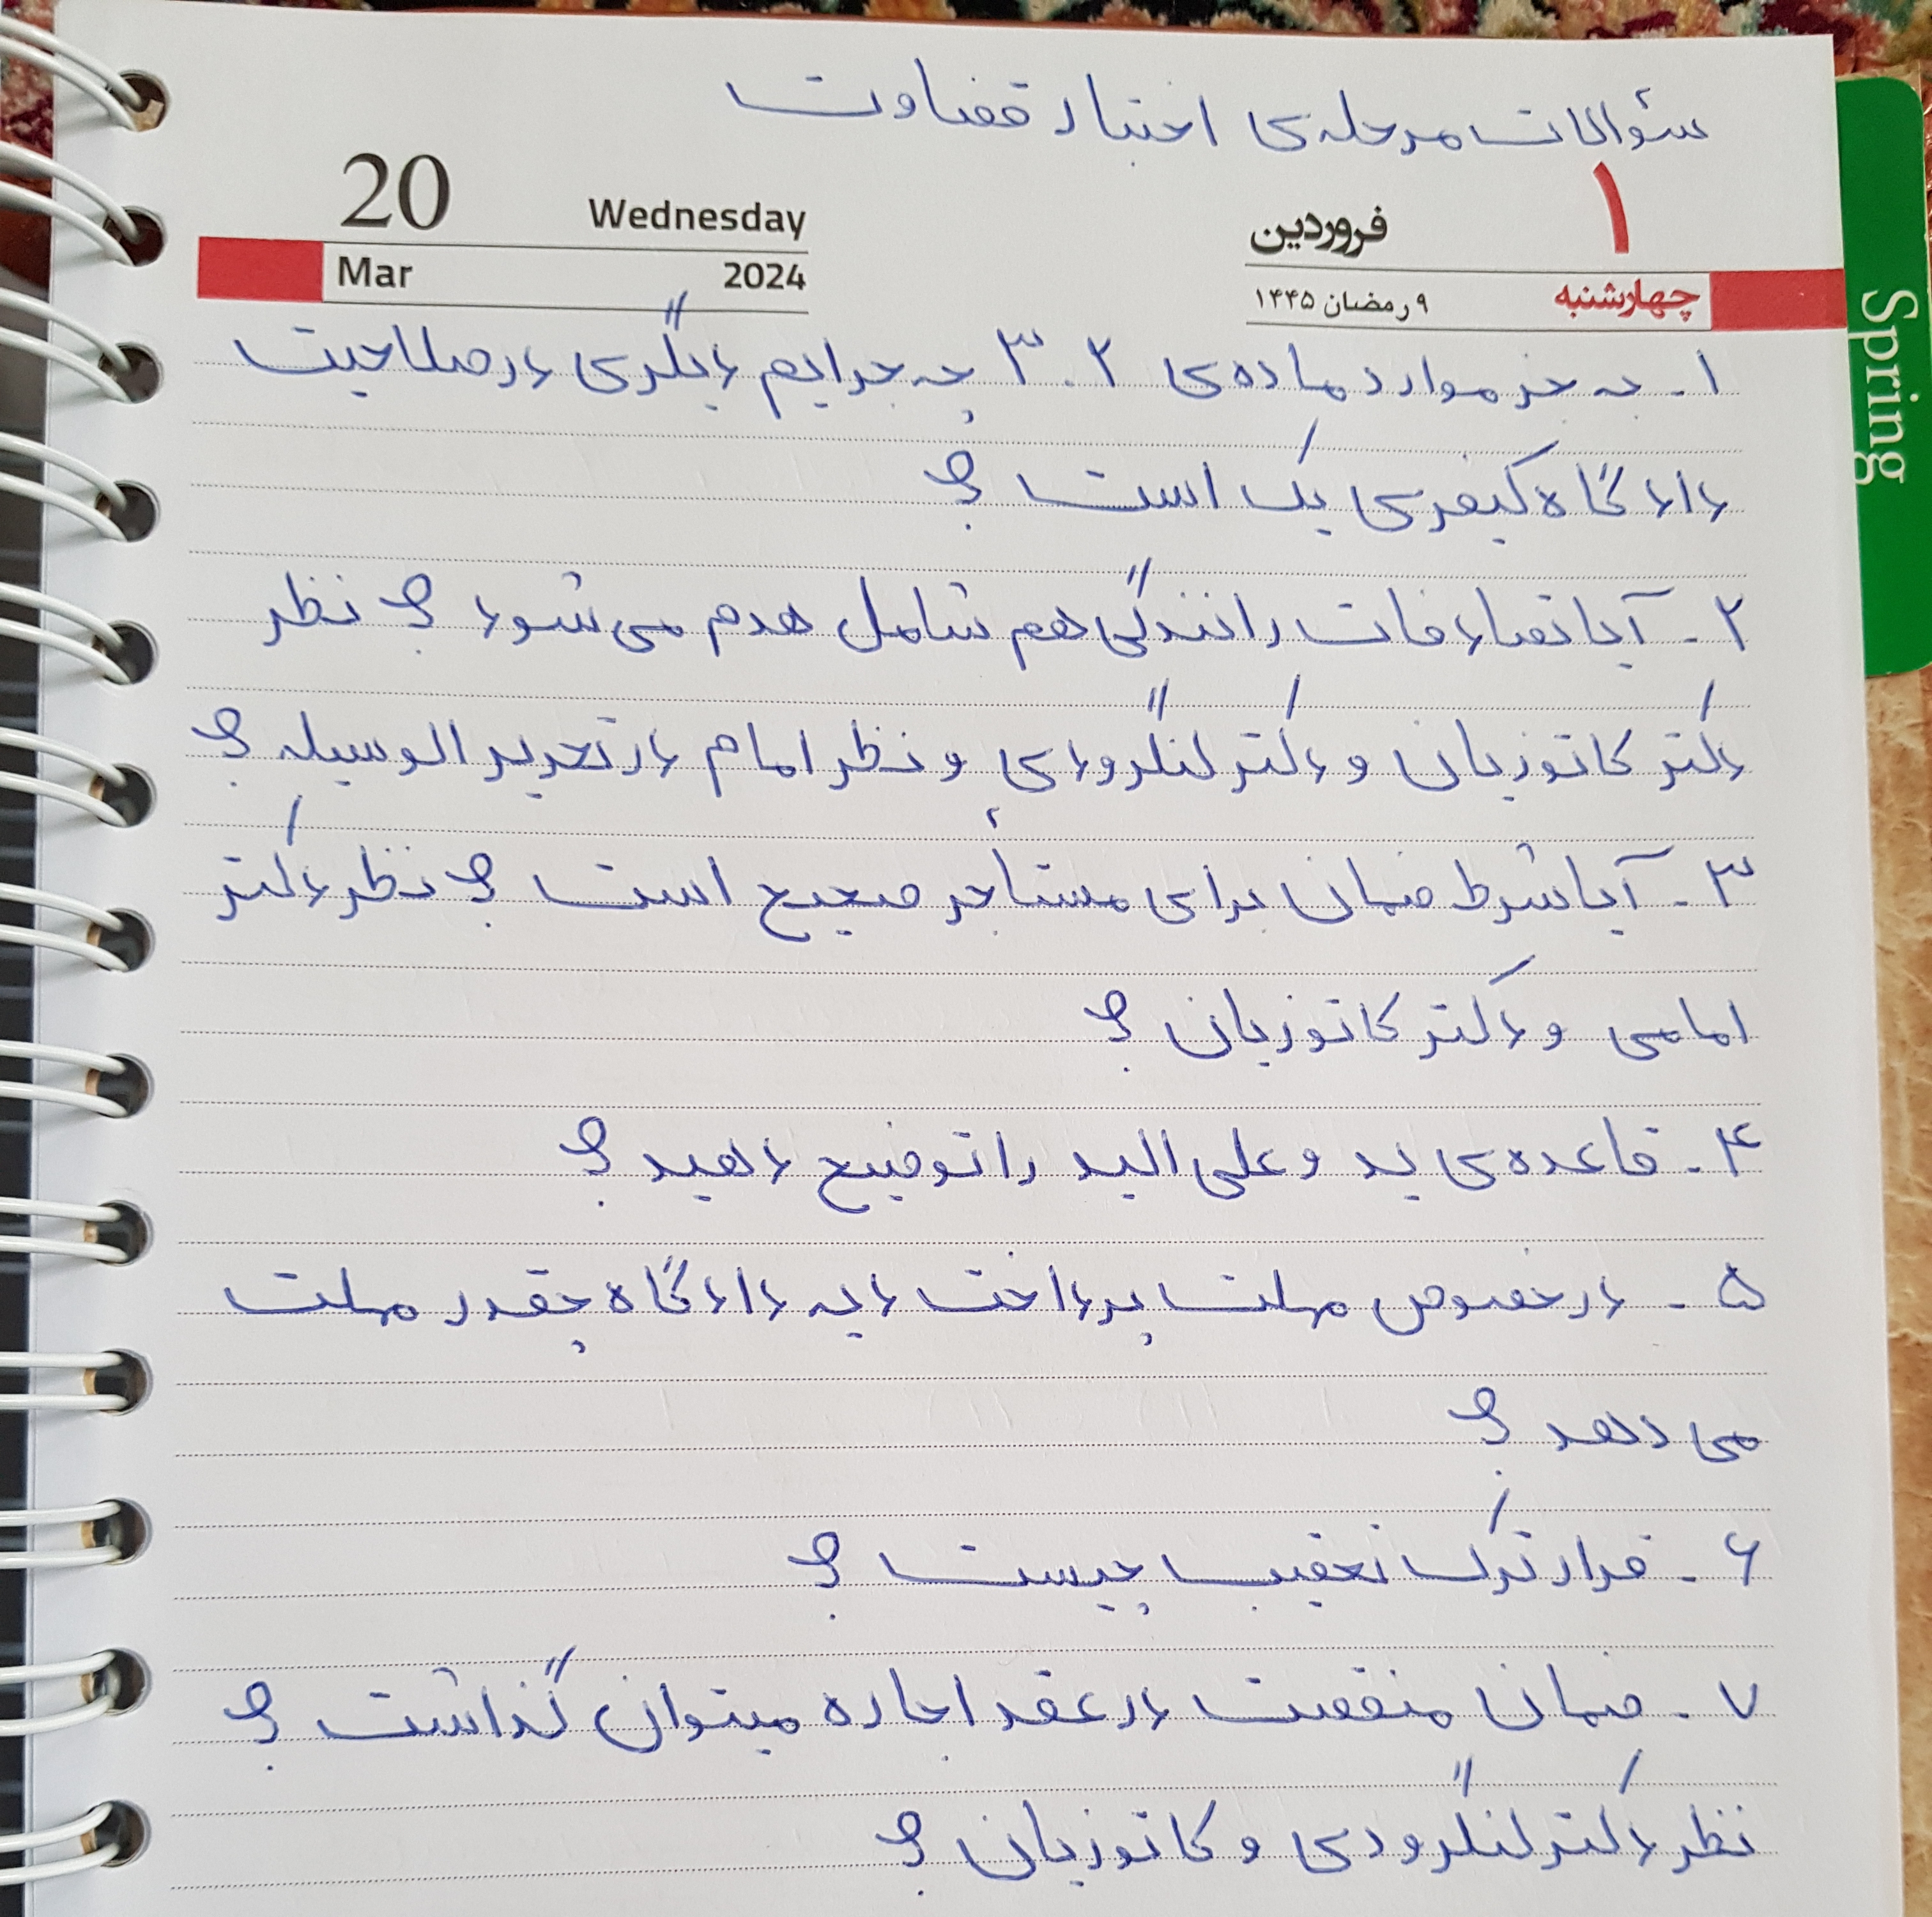 سئوالات مرحله‌ی اختبار قضاوت
20 Wednesday
Mar 2024
۱ فروردین
چهارشنبه ۹ رمضان ۱۴۴۵
Spring
۱ - به جز موارد ماده‌ی ۳۰۲ چه جرایم دیگری در صلاحیت
دادگاه کیفری یک است ؟
۲ - آیا تصادفات رانندگی هم شامل هدم می‌شود ؟ نظر
دکتر کاتوزیان و دکتر لنگرودی و نظر امام در تحریر الوسیله ؟
۳ - آیا شرط ضمان برای مستأجر صحیح است ؟ نظر دکتر
امامی و دکتر کاتوزیان ؟
۴ - قاعده‌ی ید و علی الید را توضیح دهید ؟
۵ - در خصوص مهلت پرداخت دیه دادگاه چقدر مهلت
می دهد ؟
۶ - قرار ترک تعقیب چیست ؟
۷ - ضمان منقصت در عقد اجاره میتوان گذاشت ؟
نظر دکتر لنگرودی و کاتوزیان ؟